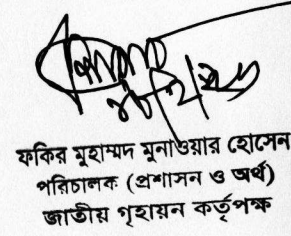 ফকির মুহাম্মদ মুনাওয়ার হোসেন
পরিচালক (প্রশাসন ও অর্থ)
জাতীয় গৃহায়ন কর্তৃপক্ষ